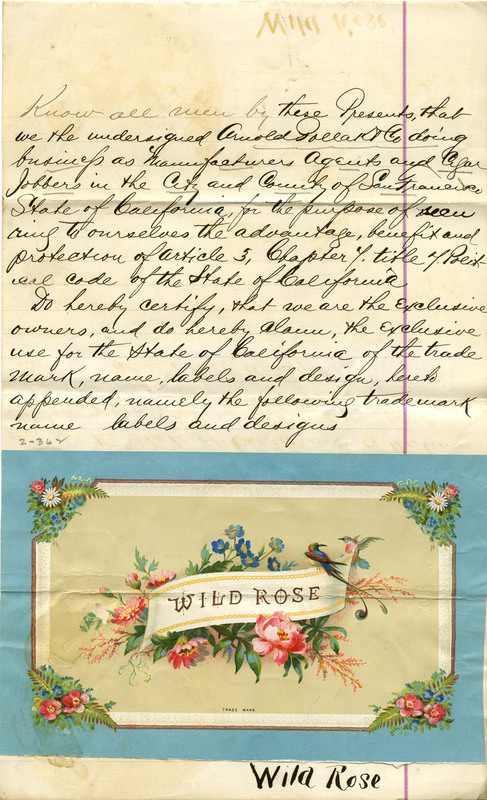 Wild Rose
Know all men by these Presents, that
we the undersigned Arnold Pollak & Co doing
business as Manufacturers Agents and Cigar
Jobbers in the City and County of San Francisco
State of California, for the purpose of secu
ring to ourselves the advantage, benefit and
protection of article 3, Chapter 7, title 7 Polit
ical code of the State of California
Do hereby certify, that we are the Exclusive
owners, and do hereby claim, the Exclusive
use for the State of California of the trade
mark, name, labels and design, hereto
appended, namely the following trademark
name labels and designs
2-362
WILD ROSE
TRADE MARK
Wild Rose